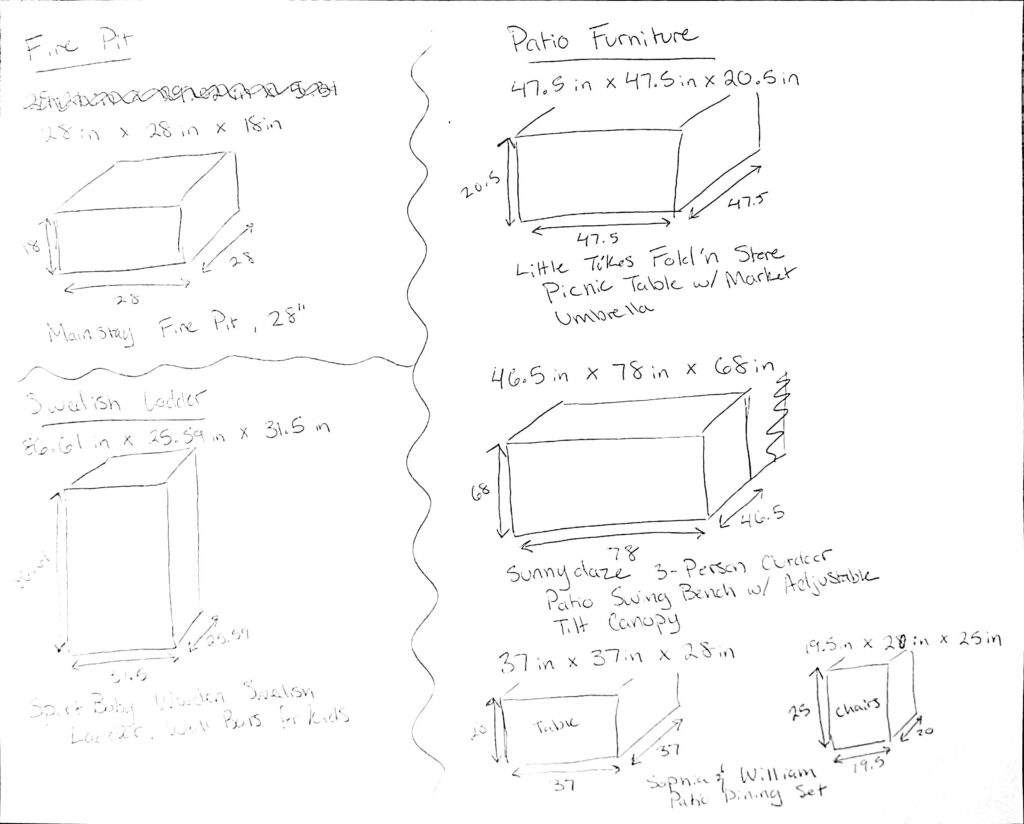 Fire Pit
28 in x 28 in x 18in
18
28
28
Mainstay Fire Pit, 28"
Swedish Ladder
86.61 in x 25.59 in x 31.5 in
25.59
31.5
Sport Baby Wooden Swedish
Ladder, Wall Bars for kids
Patio Furniture
47.5 in x 47.5 in x 20.5 in
20.5
47.5
47.5
Little Tikes Fold'n Store
Picnic Table w/ Market
Umbrella
46.5 in x 78 in x 68 in
68
46.5
78
Sunnydaze 3-Person Outdoor
Patio Swing Bench w/ Adjustable
Tilt Canopy
37 in x 37 in x 28 in
Table
37
37
19.5in x 20 in x 25 in
25
chairs
20
19.5
Sophia & William
Patio Dining Set